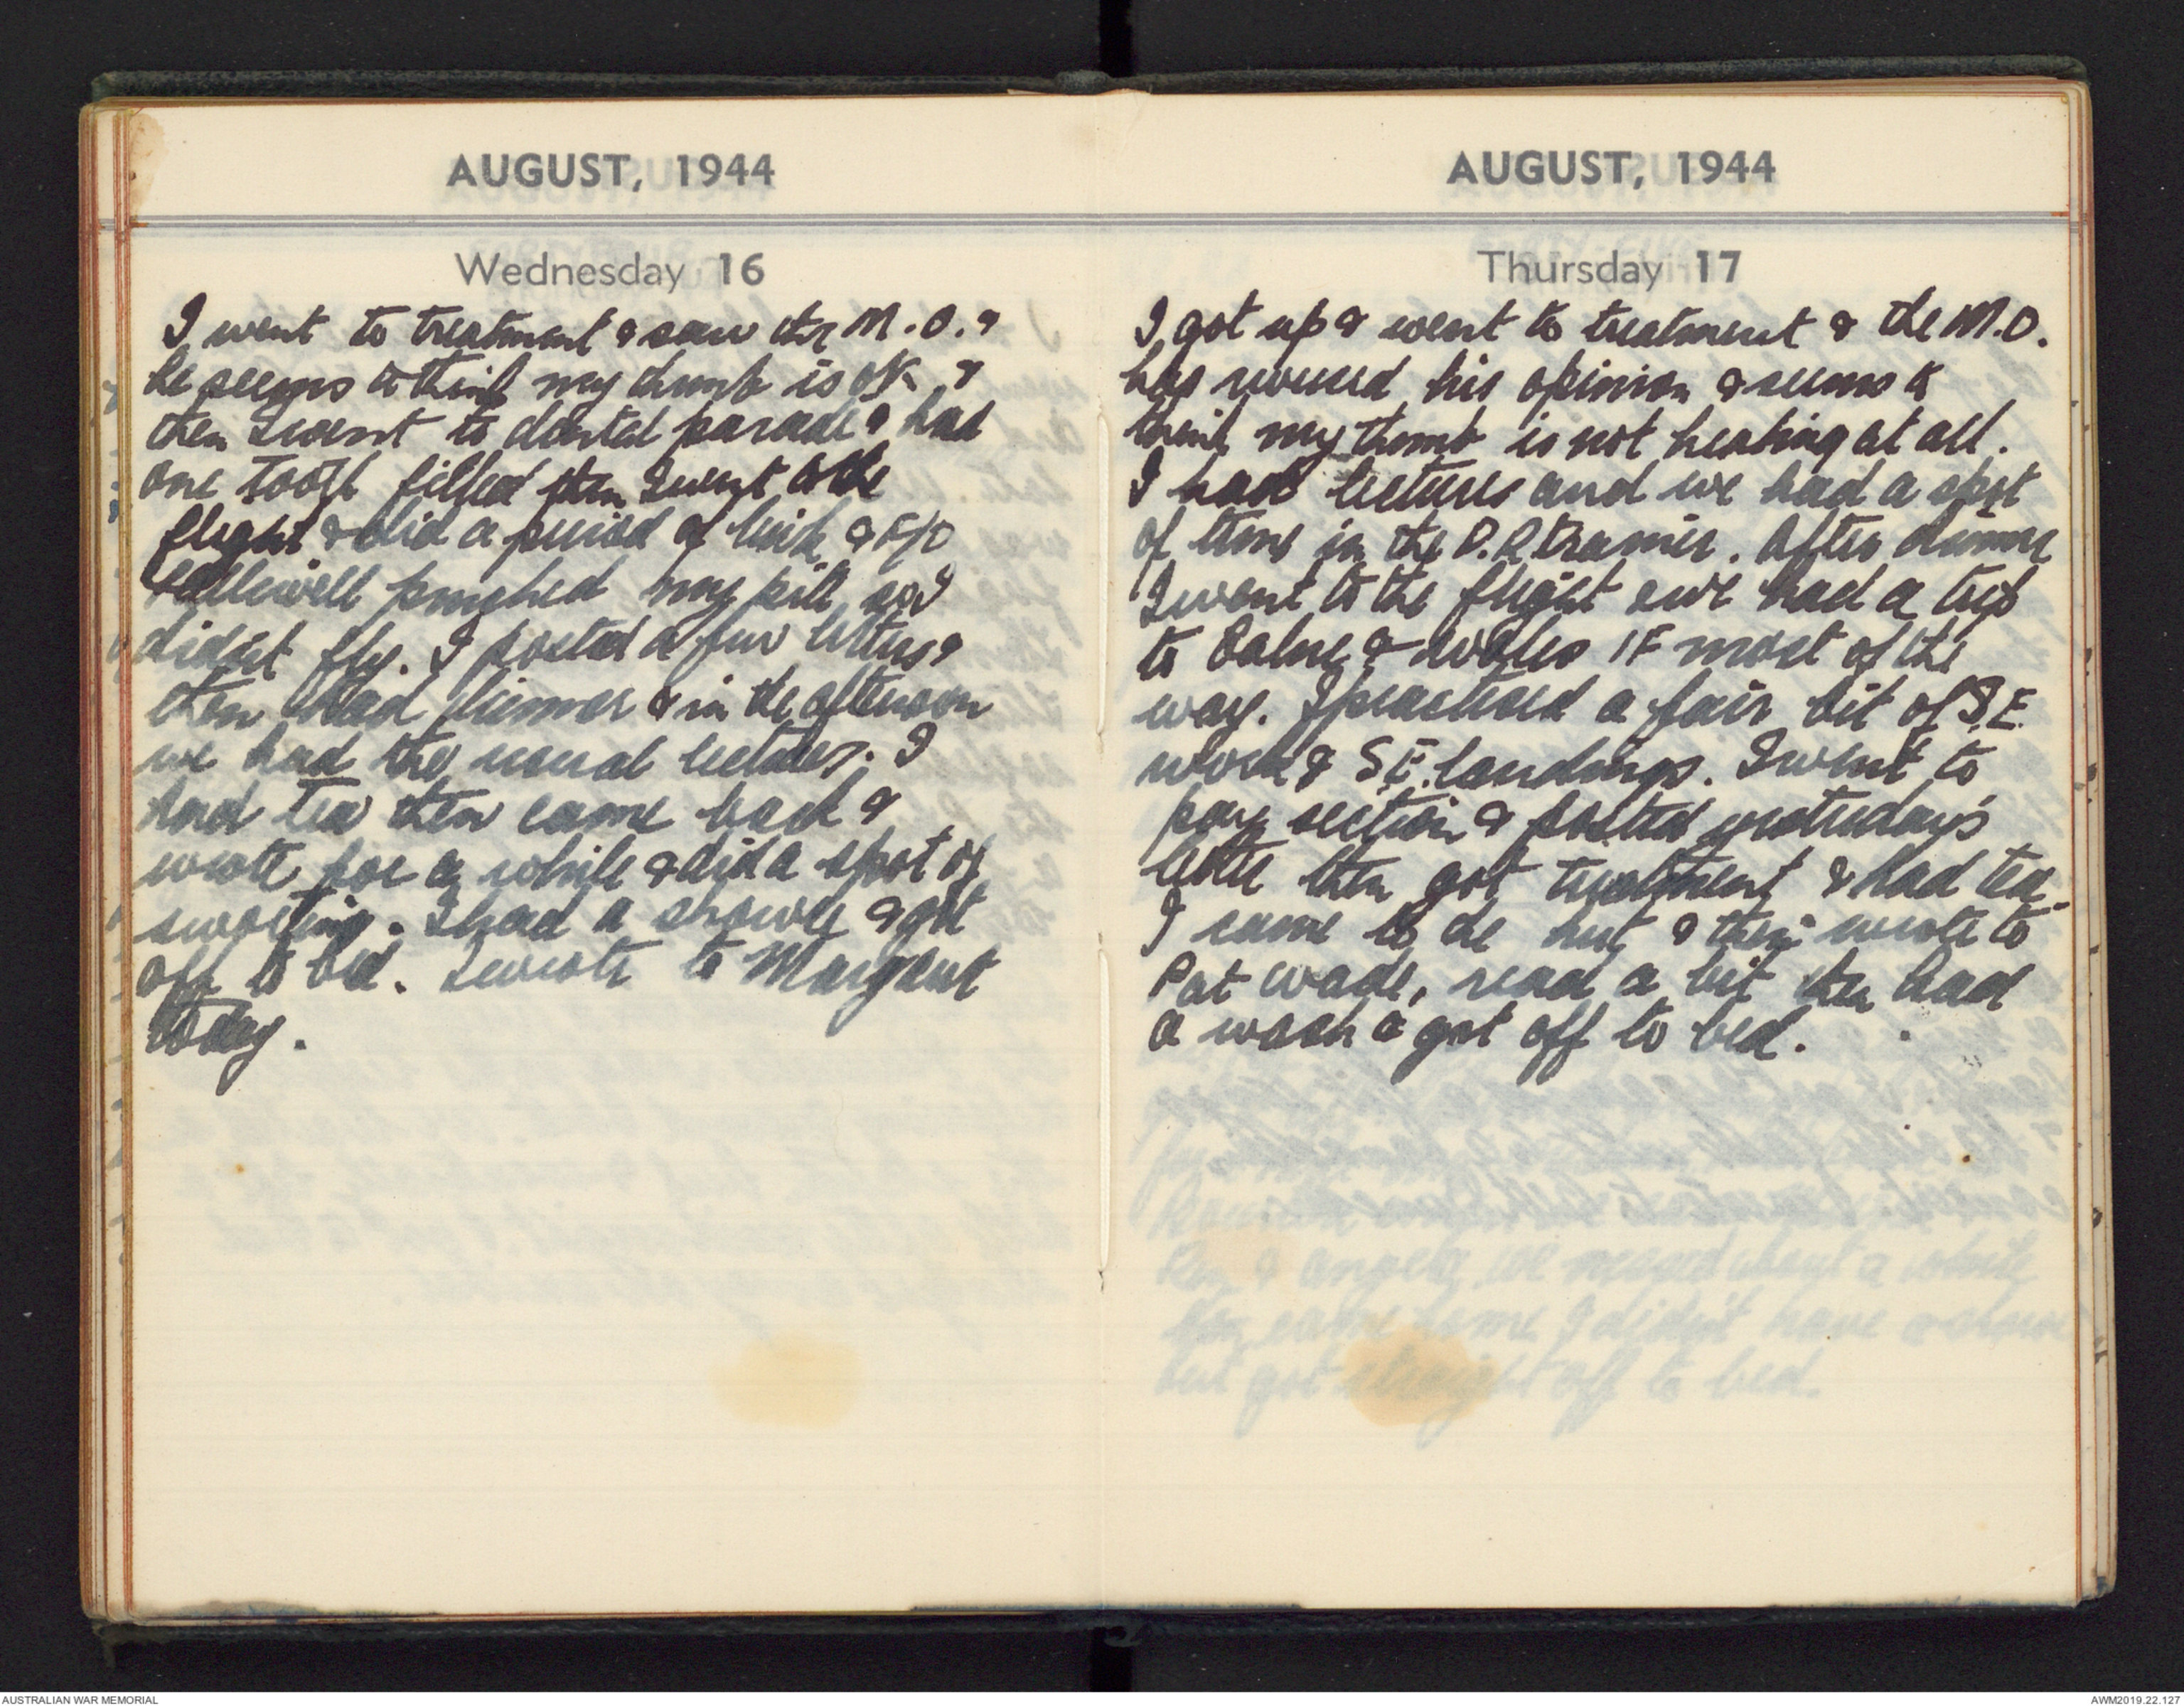 AUGUST, 1944
Wednesday 16
I went to treatment & saw the M.O. &
he seems to think my thumb is OK &
then I went to dental parade & had
one tooth filled then I went to the
flight & did a period of link & F/O
pinched my kite so I
didn't fly. I posted a few letters &
then had dinner & in the afternoon
we had the usual lectures. I
had tea then came back &
wrote for a while & did a spot of
swotting. I had a shower & got
off to bed. I wrote to Margaret
today.
AUGUST, 1944
Thursday 17
I got up & went to treatment & the M.O.
has revised his opinion & seems to
think my thumb is not healing at all.
I had lectures and we had a spot
of time in the D.R trainer. After dinner
I went to the flight & we had a trip
to Calne & Wales IF most of the
way. I practised a fair bit of S.E.
work & S.E. landings. I went to
pay section & posted yesterday's
letter then got treatment & had tea.
I came to the hut & then wrote to
Pat Wade, read a bit then had
a wash & got off to bed.
AUSTRALIAN WAR MEMORIAL
AWM2019.22.127